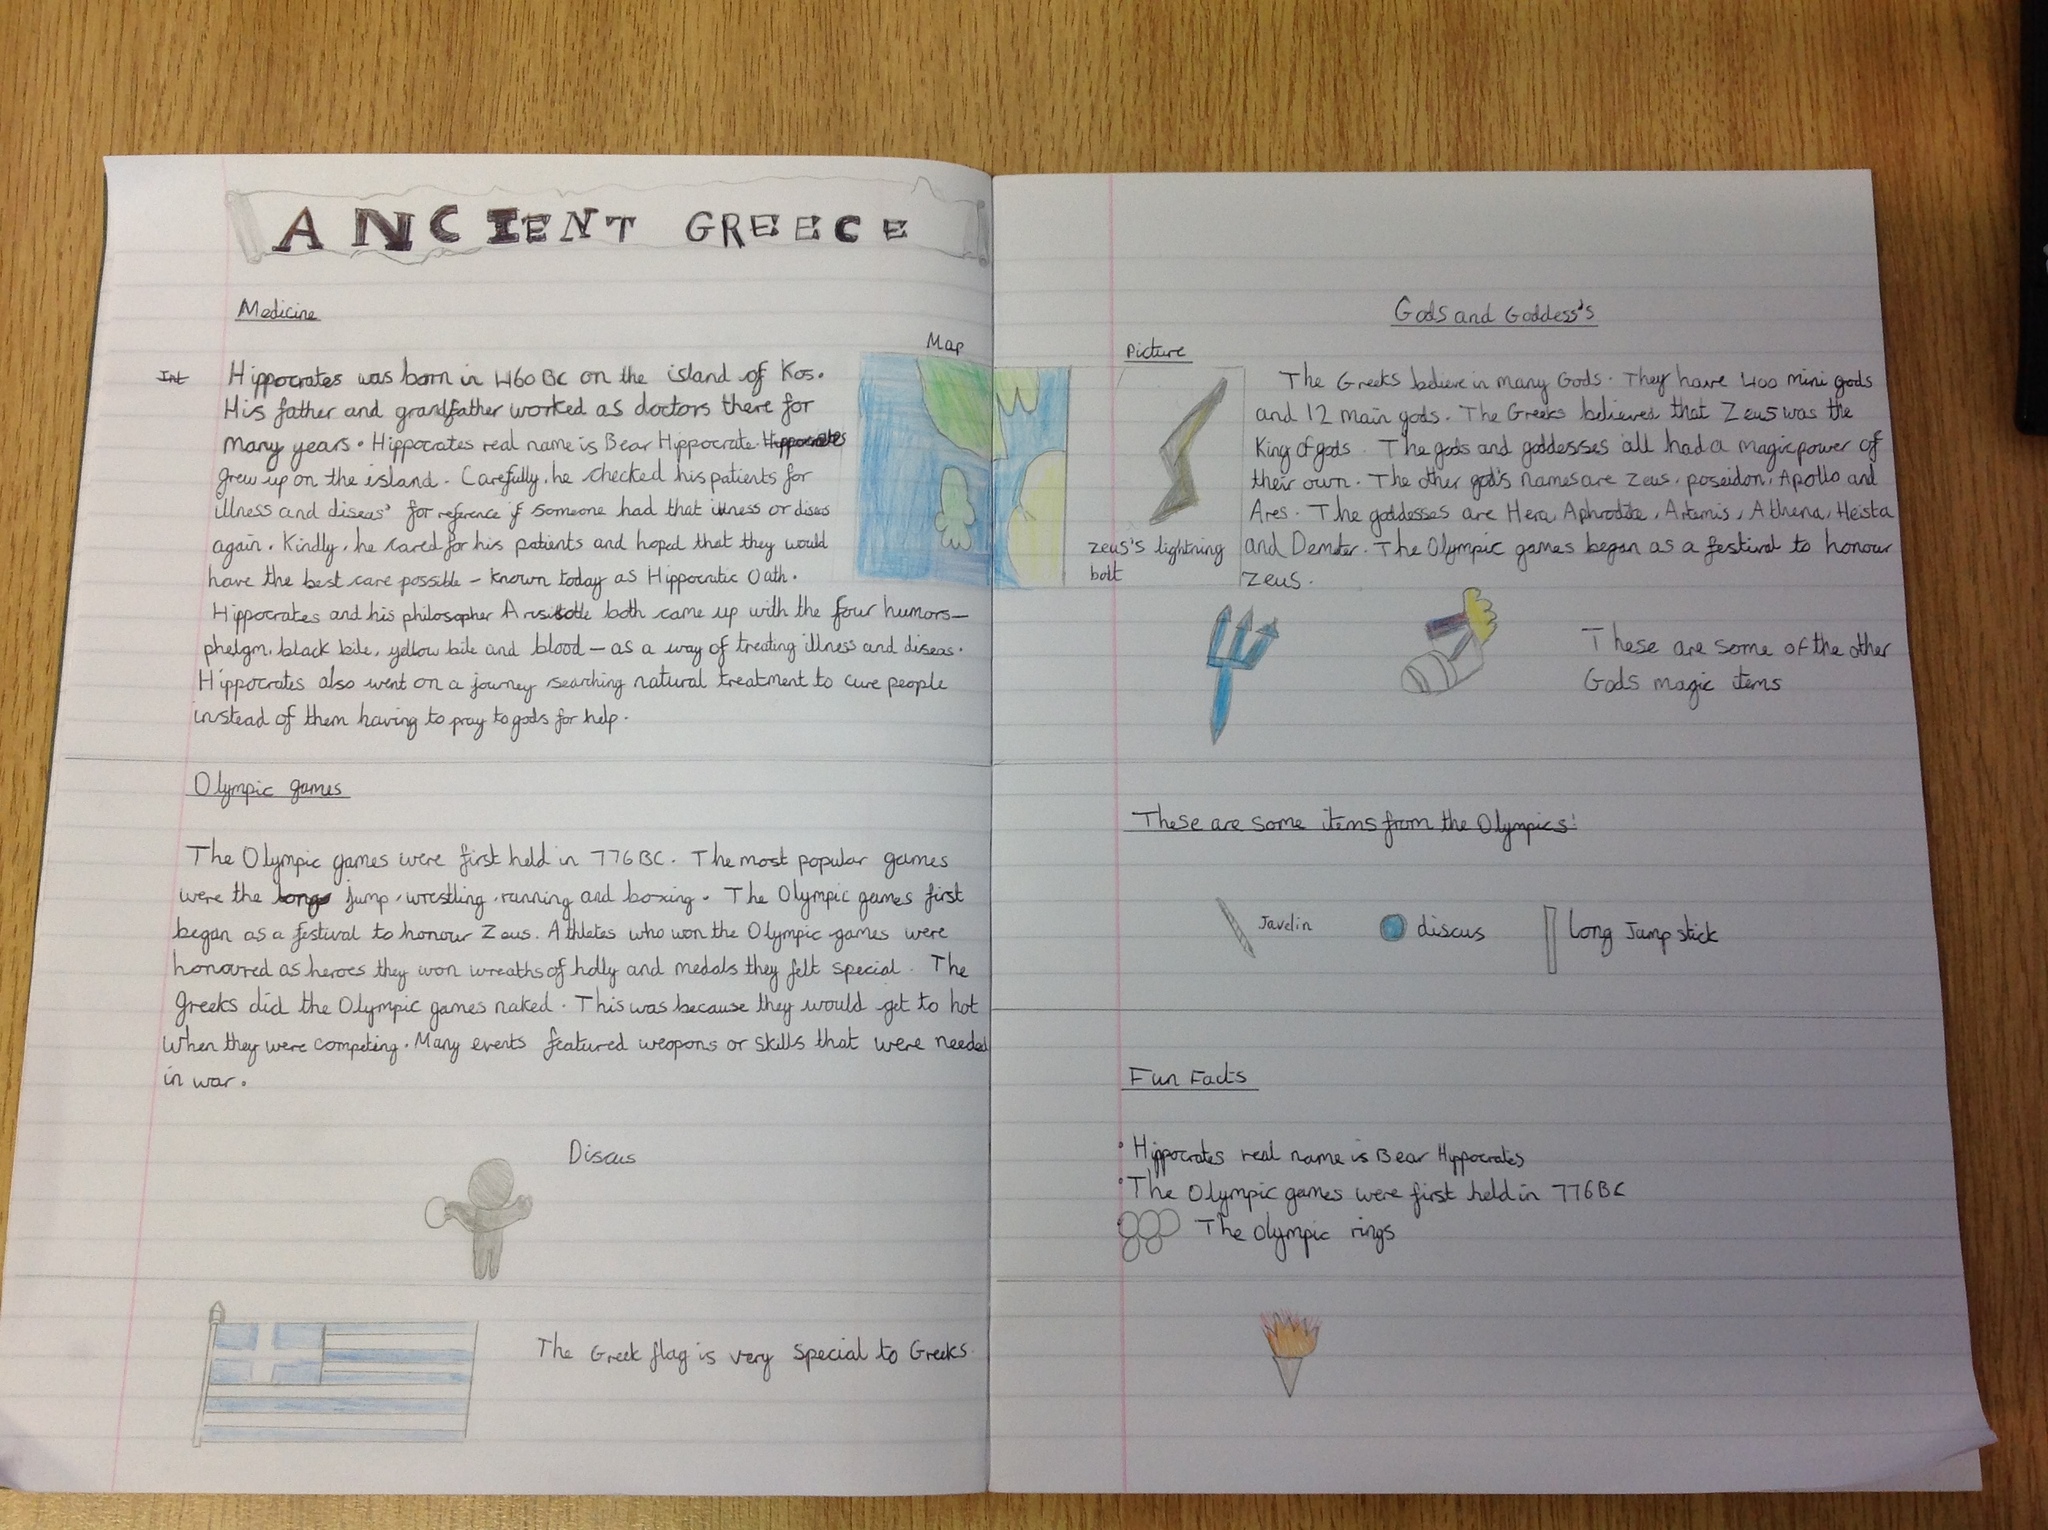 ANCIENT GREECE
Medicine
Int
Map
Hippocrates was born in 460 BC on the island of Kos.
His father and grandfather worked as doctors there for
many years. Hippocrates real name is Bear Hippocrate. Hippocrates
grew up on the island. Carefully, he checked his patients for
illness and diseas' for reference if someone had that illness or diseas
again. Kindly, he cared for his patients and hoped that they would
have the best care possible - known today as Hippocratic Oath.
Hippocrates and his philosopher Aristotle both came up with the four humors-
phelgm, black bile, yellow bile and blood - as a way of treating illness and diseas.
Hippocrates also went on a journey searching natural treatment to cure people
instead of them having to pray to gods for help.
Olympic games
The Olympic games were first held in 776 BC. The most popular games
were the long jump, wrestling, running and boxing. The Olympic games first
began as a festival to honour Zeus. Athletes who won the Olympic games were
honoured as heroes they won wreaths of holly and medals they felt special. The
greeks did the Olympic games naked. This was because they would get to hot
when they were competing. Many events featured weopons or skills that were needed
in war.
Discus
The Greek flag is very special to Greeks.
Gods and Goddess's
Picture
The Greeks believe in many Gods. They have 400 mini gods
and 12 main gods. The Greeks believed that Zeus was the
King of gods. The gods and goddesses all had a magic power of
their own. The other god's names are Zeus, poseidon, Apollo and
Ares. The goddesses are Hera, Aphrodite, Artemis, Athena, Heista
and Demeter. The Olympic games began as a festival to honour
Zeus.
zeus's lightning
bolt
These are some of the other
Gods magic items
These are some items from the Olympics:
Javelin
discus
long Jump stick
Fun Facts
• Hippocrates real name is Bear Hippocrates
• The Olympic games were first held in 776 BC
• The olympic rings